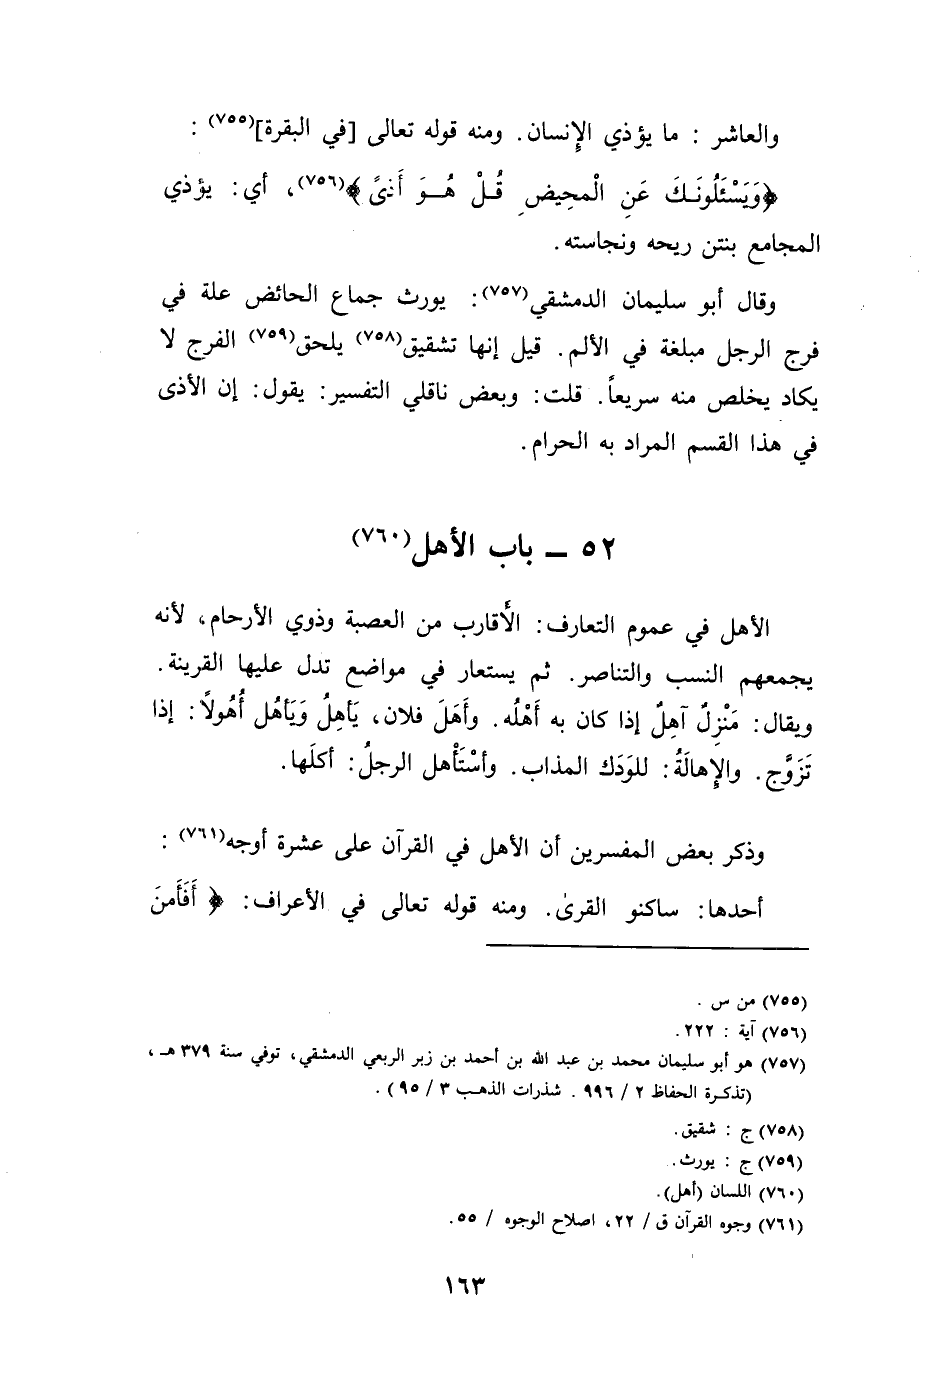 والعاشر : ما يؤذي الإِنسان. ومنه قوله تعالى [في البقرة](٧٥٥) :
﴿وَيَسْئَلُونَـكَ عَنِ الْمحِيضِ قُـلْ هُـوَ أَذىً﴾(٧٥٦)، أي: يؤذي
المجامع بنتن ريحه ونجاسته.
وقال أبو سليمان الدمشقي(٧٥٧): يورث جماع الحائض علة في
فرج الرجل مبلغة في الألم. قيل إنها تشقيق(٧٥٨) يلحق(٧٥٩) الفرج لا
يكاد يخلص منه سريعاً. قلت: وبعض ناقلي التفسير: يقول: إن الأذى
في هذا القسم المراد به الحرام.
٥٢ ــ باب الأهل(٧٦٠)
الأهل في عموم التعارف: الأَقارب من العصبة وذوي الأرحام، لأنه
يجمعهم النسب والتناصر. ثم يستعار في مواضع تدل عليها القرينة.
ويقال: مَنْزِلٌ آهِلٌ إذا كان به أَهْلُه. وأَهَلَ فلان، يَأهِلُ وَيَأهُل أُهُولاً: إذا
تَزَوَّج. والإِهالَةُ: للوَدَك المذاب. وأسْتَأْهل الرجلُ: أكلَها.
وذكر بعض المفسرين أن الأهل في القرآن على عشرة أوجه(٧٦١) :
أحدها: ساكنو القرىٰ. ومنه قوله تعالى في الأعراف: ﴿ أَفَأَمنَ
(٧٥٥) من س .
(٧٥٦) آية : ٢٢٢.
(٧٥٧) هو أبو سليمان محمد بن عبد الله بن أحمد بن زبر الربعي الدمشقي، توفي سنة ٣٧٩ هـ ،
(تذكـرة الحفاظ ٢ / ٩٩٦ . شذرات الذهـب ٣ / ٩٥ ) .
(٧٥٨) ج : شقيق.
(٧٥٩) ج : يورث.
(٧٦٠) اللسان (أهل).
(٧٦١) وجوه القرآن ق / ٢٢، اصلاح الوجوه / ٥٥.
١٦٣